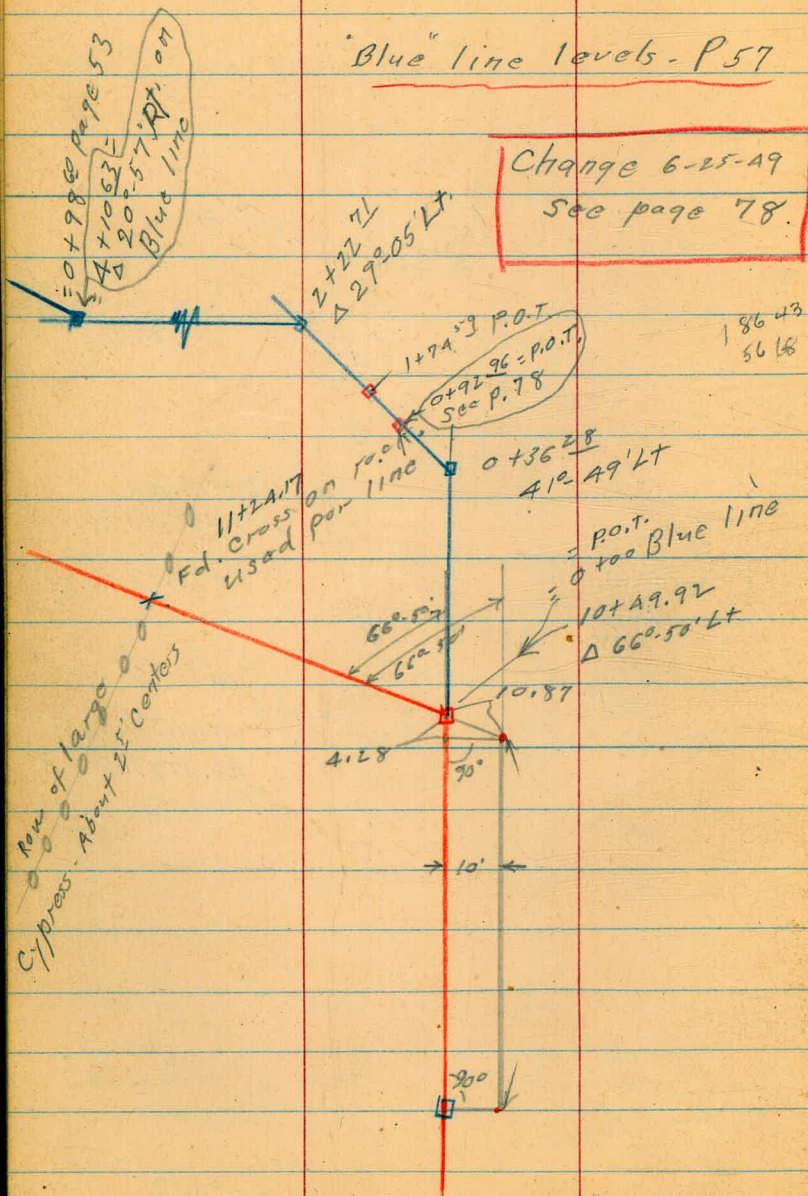 "Blue" line levels - P 57
Change 6-25-49
See page 78
= 0+98.60 page 53
= 4+10 63 =
Δ 20°-57' Rt. on
Blue line
2+22 71
Δ 29°-05' Lt.
1+74 59 P.O.T.
0+92 96 = P.O.T.
See P. 78
186 43
0+36 28
41°-49' Lt
11+24.17
Fd. Cross on
used por line
= P.O.T.
= 0+00 Blue line
10+49.92
Δ 66°-50' Lt
66°-50'
66°-50'
10.87
4.28
90°
10'
Row of large
Cypress - About 25' Centers
90°